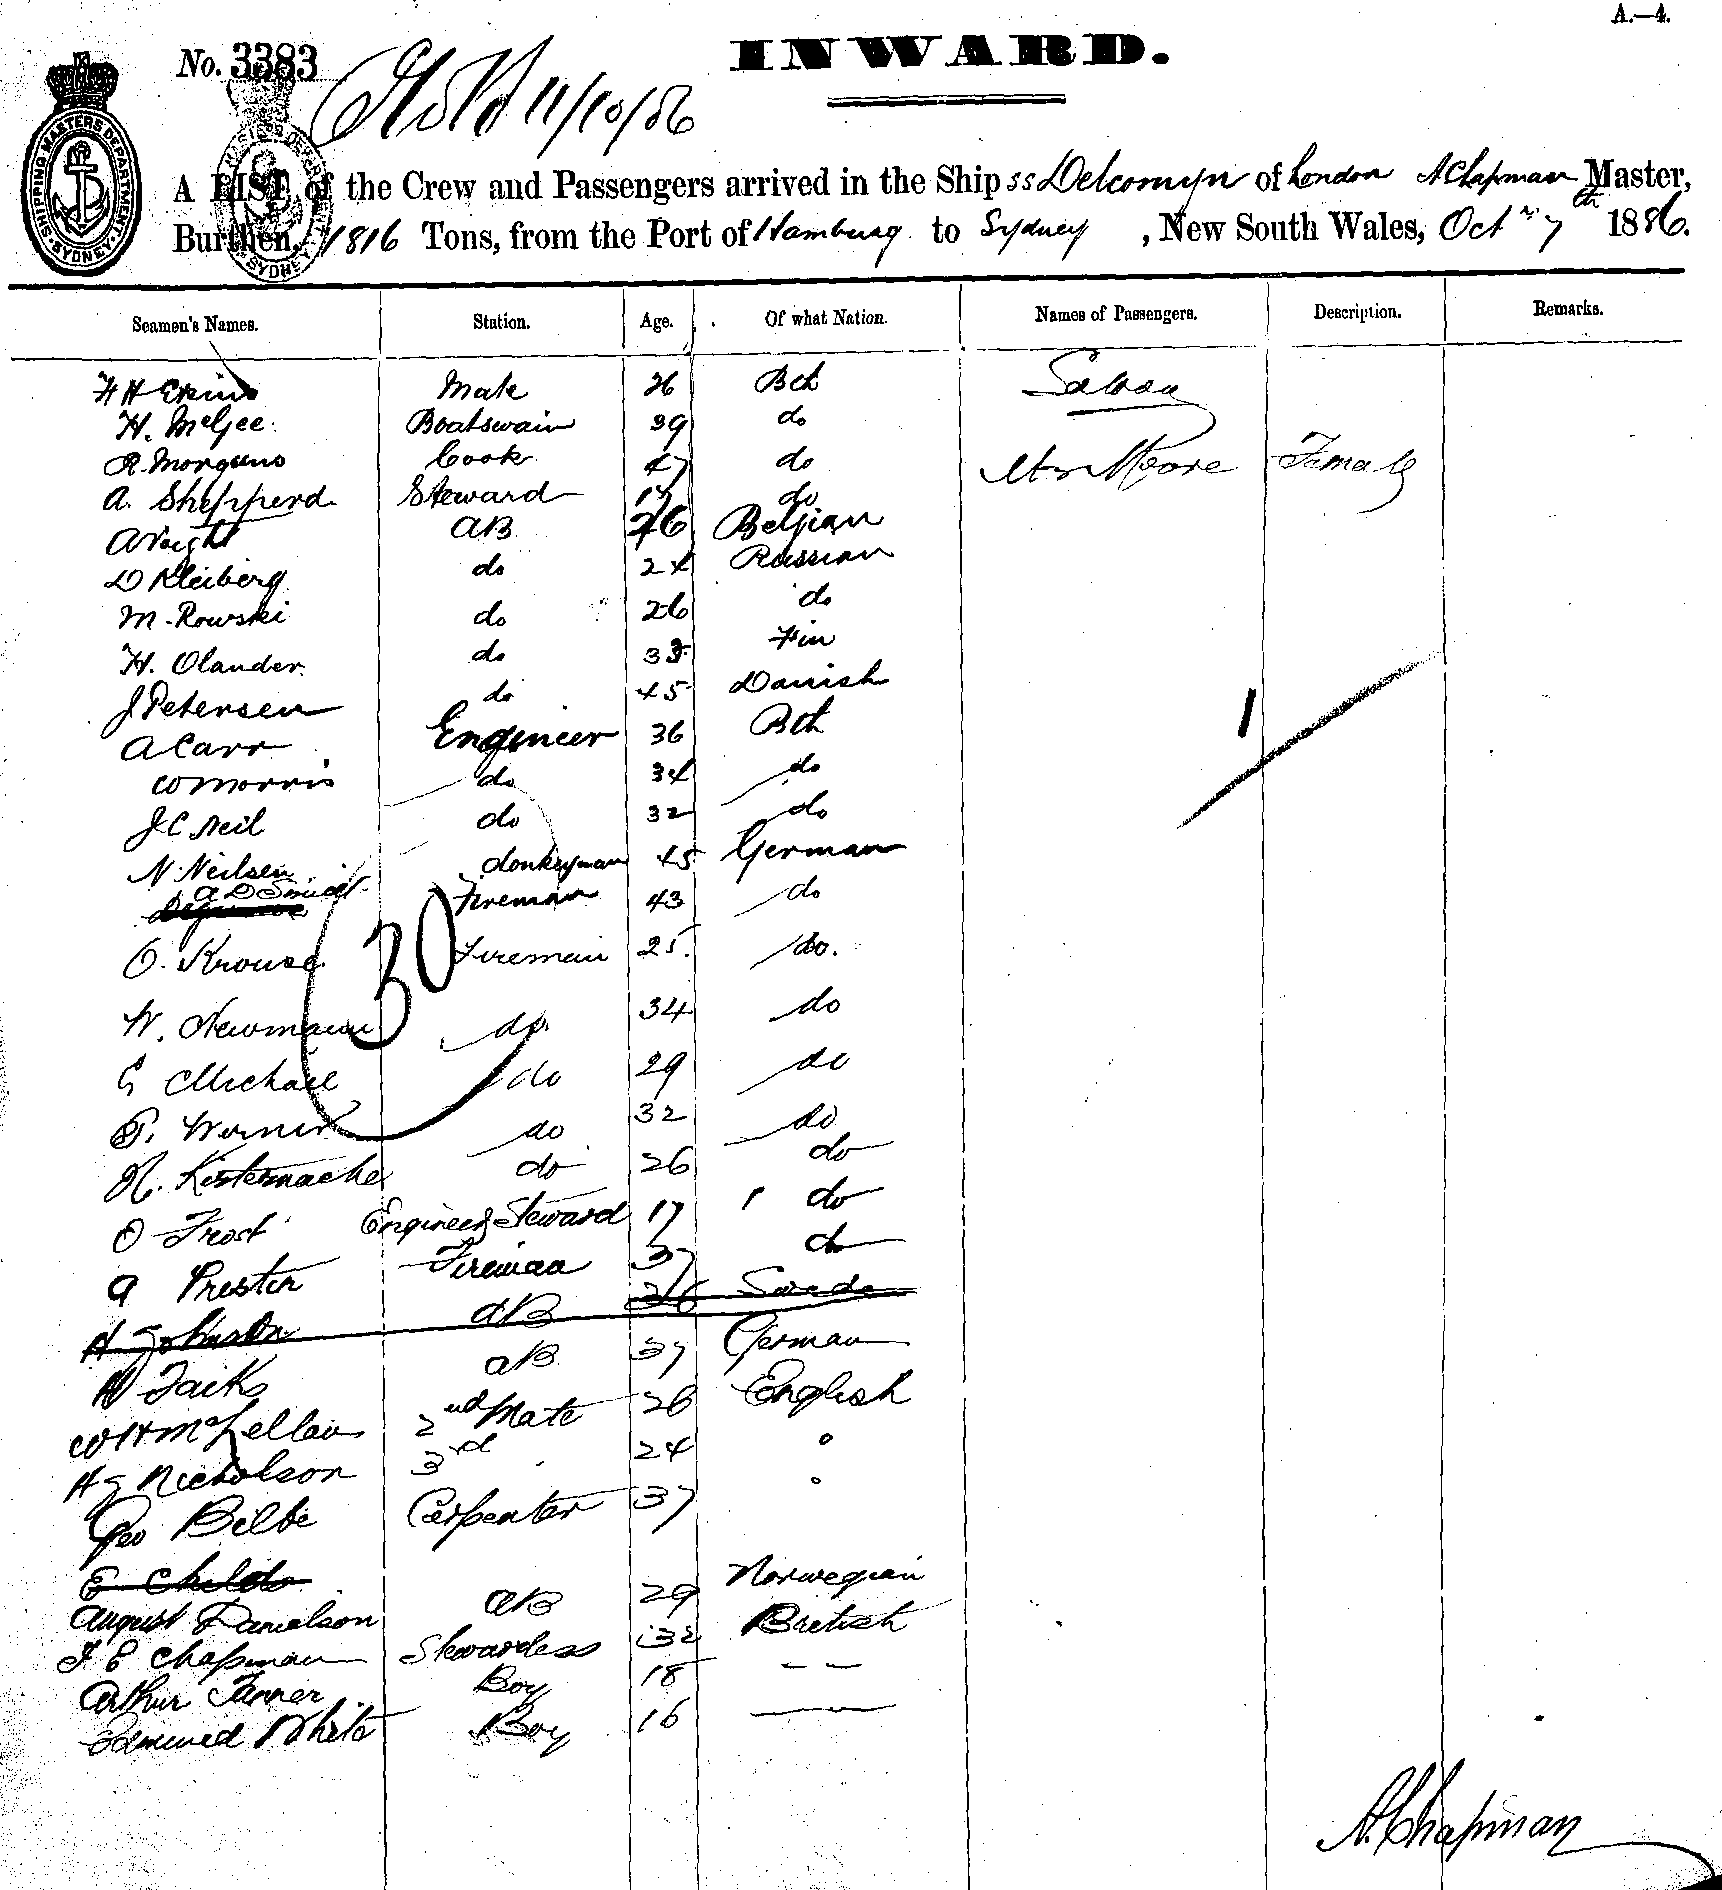 A.—4.
No. 3383
INWARD.
11/10/86
SHIPPING MASTERS DEPARTMENT SYDNEY
A LIST of the Crew and Passengers arrived in the Ship SS Delcomyn of London A Chapman Master,
Burthen, 1816 Tons, from the Port of Hamburg to Sydney, New South Wales, Oct 7th 1886.
Seamen's Names. Station. Age. Of what Nation. Names of Passengers. Description. Remarks.
Mate 26 Bch Saloon
H. McGee Boatswain 39 do
R. Morgans Cook 47 do Mrs Moore Female
A. Shepperd Steward 17 do
A Voight AB 26 Belgian
D Kleiberg do 24 Russian
M. Rowski do 26 do
H. Olander do 33 Fin
J Petersen do 45 Danish
A Carr Engineer 36 Bch
W Morris do 34 do
J C Neil do 32 do
N. Neilsen donkeyman 45 German
A D Smidt Fireman 43 do
O. Krouse Fireman 25 do.
W. Newmann do 34 do
G Michael do 29 do
P. Werner do 32 do
R. Kistemache do 26 do
O Frost Engineers Steward 17 do
A Prester Fireman 37 do
H Johnson AB 26 Swede
H Jacks AB 37 German
W H McLellan 2nd Mate 26 English
H G Nicholson 3rd 24 "
Geo Bilbe Carpenter 37 "
E Childs
August Danielson AB 29 Norwegian
F E Chapman Stewardess 32 British
Arthur Tanner Boy 18 — —
Edmund White Boy 16 ——
30
1
A. Chapman